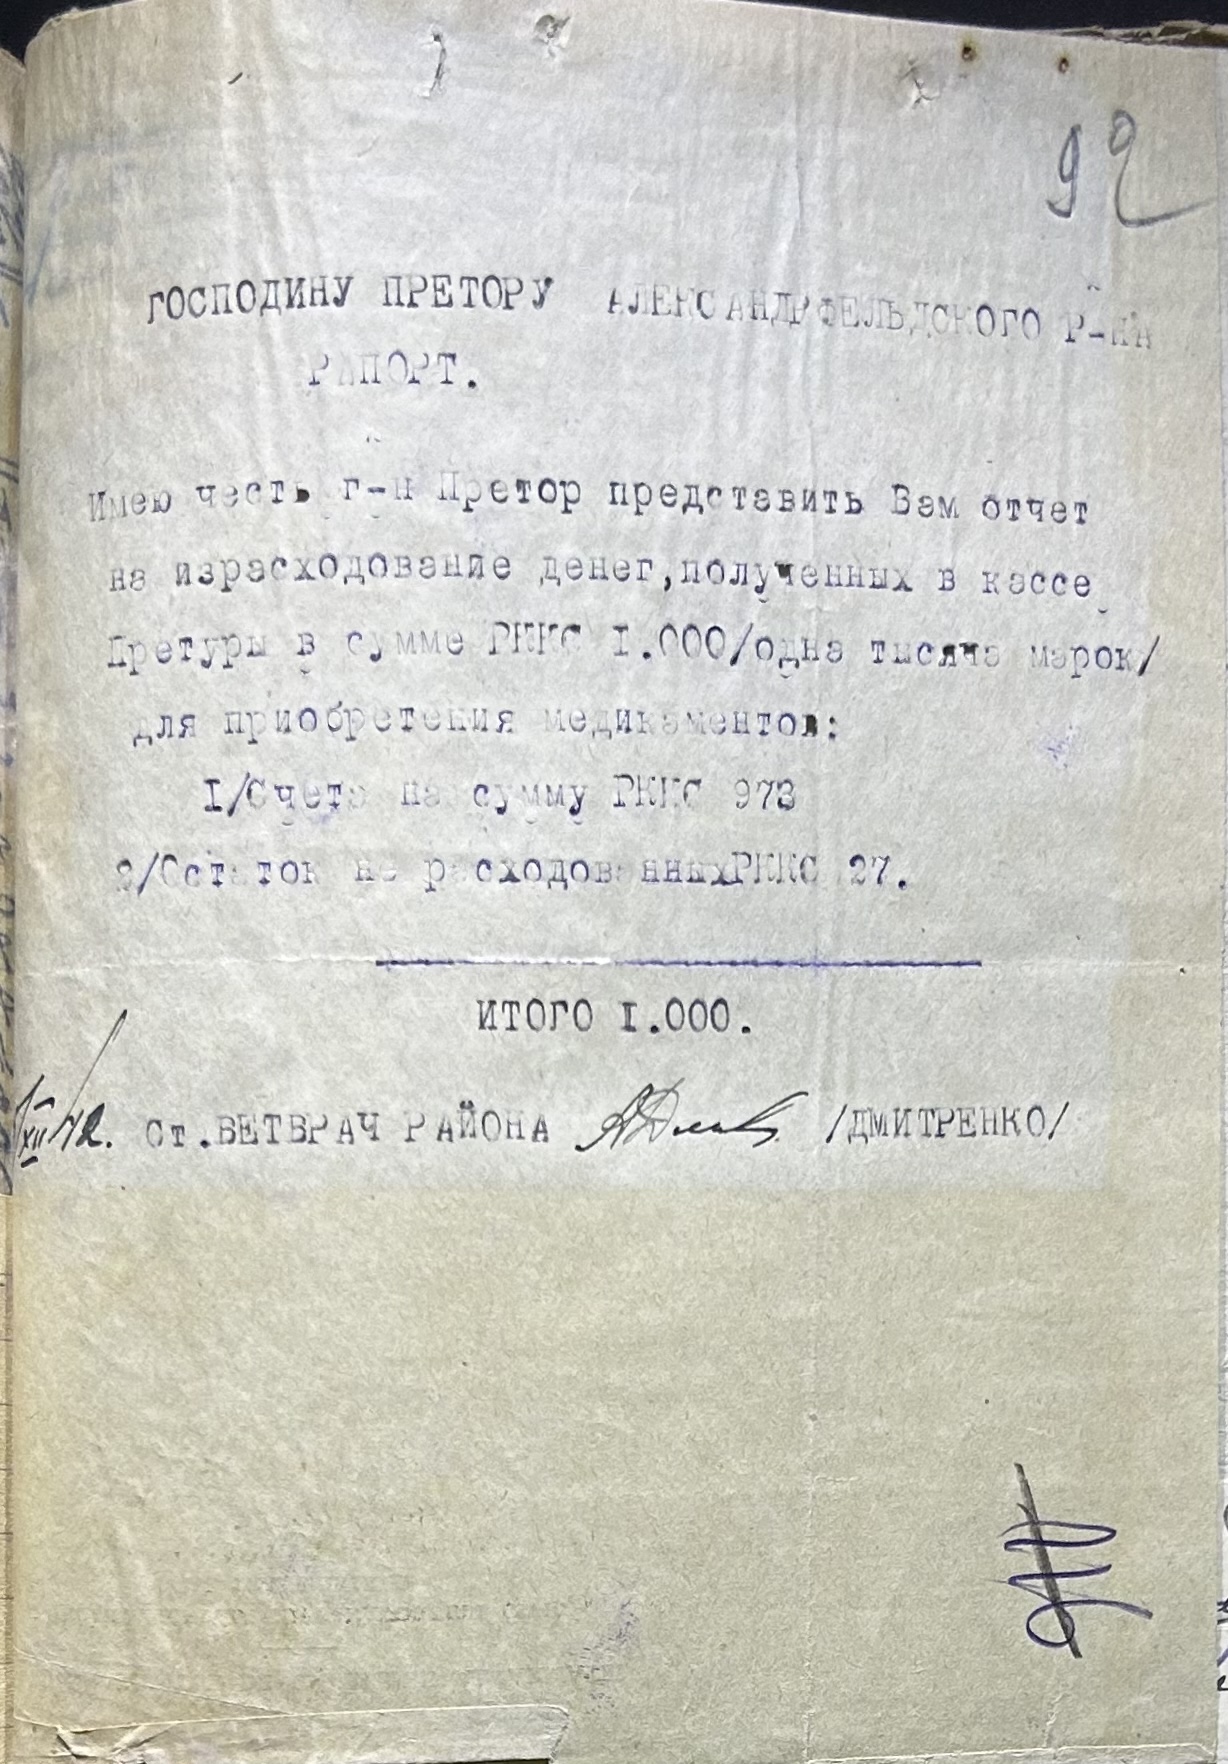 92
ГОСПОДИНУ ПРЕТОРУ АЛЕКСАНДРФЕЛЬДСКОГО Р-НА
РАПОРТ.
Имею честь г-н Претор представить Вам отчет
на израсходование денег,полученных в кассе
Претуры в сумме РККС I.000/одна тысяча марок/
для приобретения медикаментов:
I/Счета на сумму РККС 973
2/Остаток не расходованныхРККС 27.
ИТОГО I.000.
XII 42. Ст.ВЕТВРАЧ РАЙОНА /ДМИТРЕНКО/